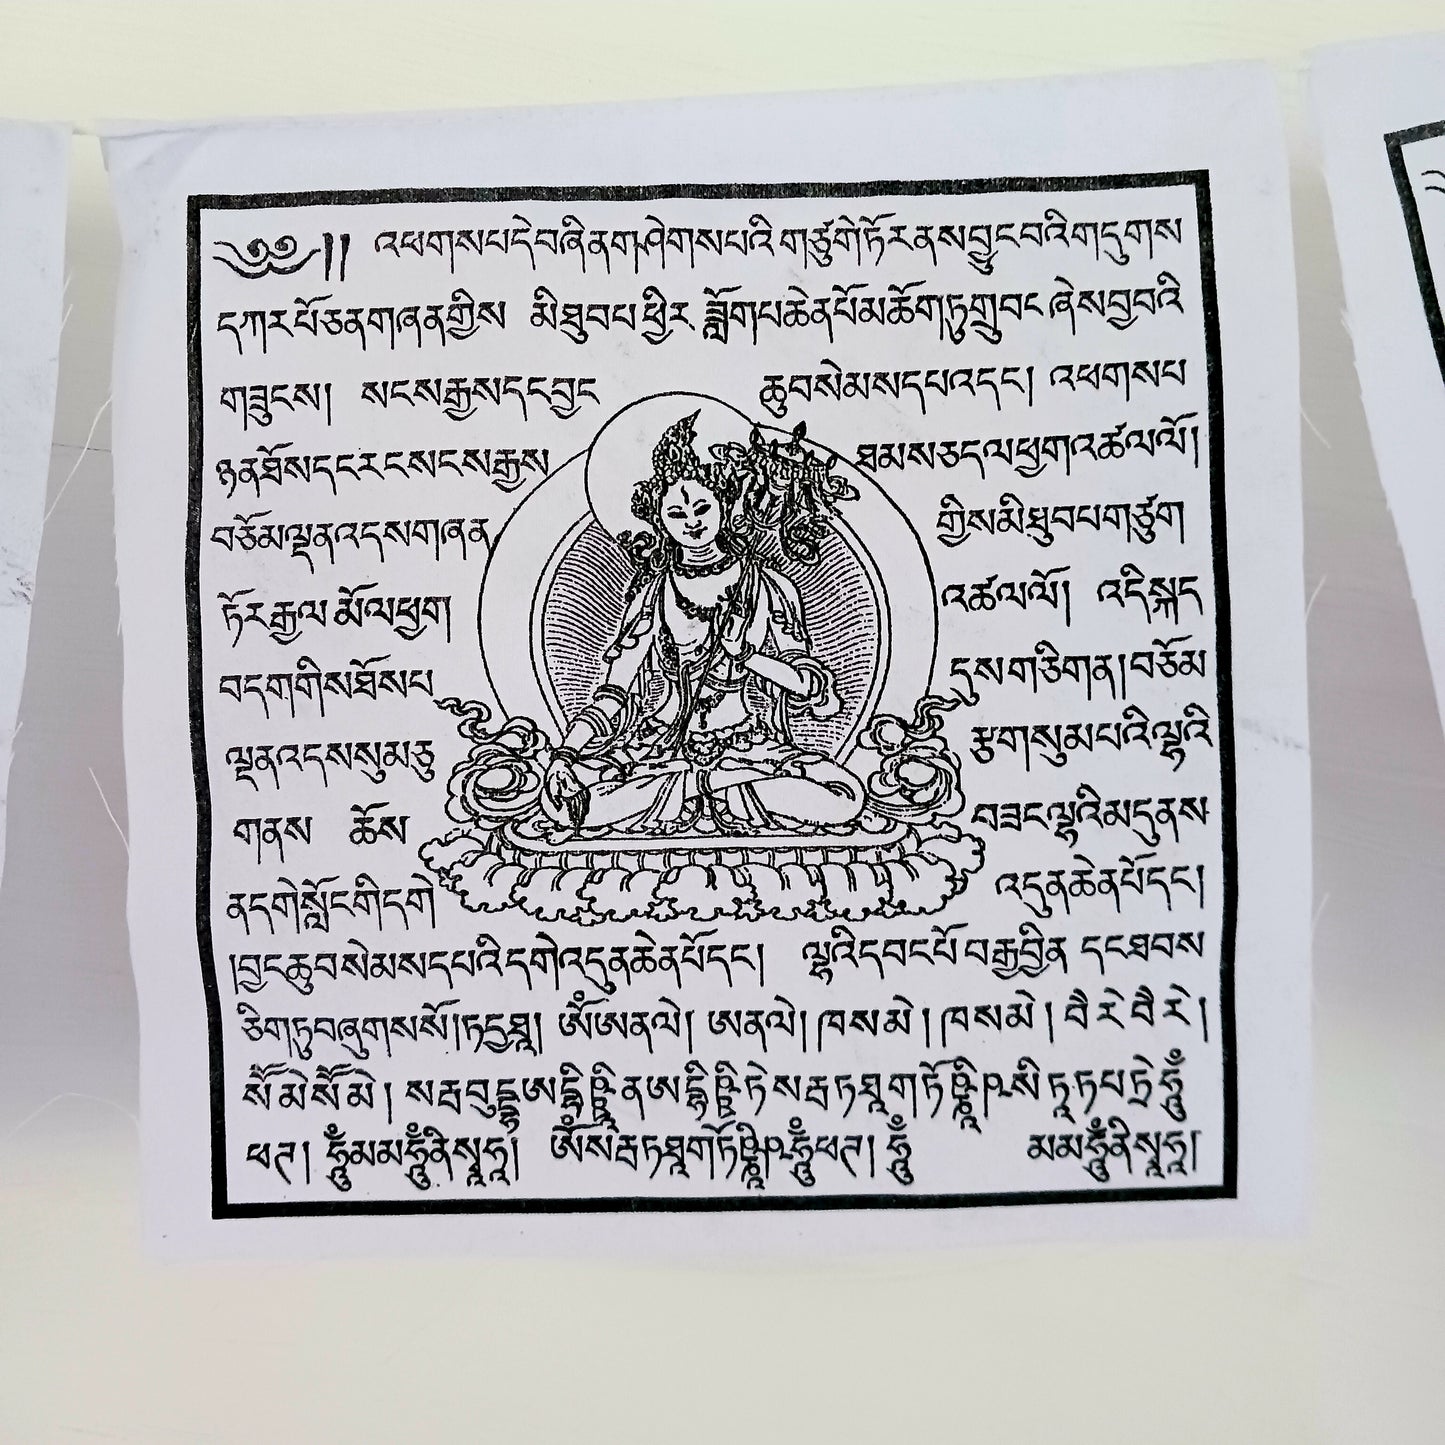 ༄༅།། འཕགས་པ་དེ་བཞིན་གཤེགས་པའི་གཙུག་ཏོར་ནས་བྱུང་བའི་གདུགས
དཀར་པོ་ཅན་གཞན་གྱིས མི་ཐུབ་པ་ཕྱིར་ཟློག་པ་ཆེན་པོ་མཆོག་ཏུ་གྲུབ་ང་ཞེས་བྱ་བའི
གཟུངས། སངས་རྒྱས་དང་བྱང ཆུབ་སེམས་དཔའ་དང། འཕགས་པ
ཉན་ཐོས་དང་རང་སངས་རྒྱས ཐམས་ཅད་ལ་ཕྱག་འཚལ་ལོ།
བཅོམ་ལྡན་འདས་གཞན གྱིས་མི་ཐུབ་པ་གཙུག
ཏོར་རྒྱལ་མོ་ལ་ཕྱག འཚལ་ལོ། འདི་སྐད
བདག་གིས་ཐོས་པ དུས་གཅིག་ན། བཅོམ
ལྡན་འདས་སུམ་ཅུ རྩ་གསུམ་པའི་ལྷའི
གནས ཆོས བཟང་ལྷའི་མདུན་ས
ན་དགེ་སློང་གི་དགེ འདུན་ཆེན་པོ་དང།
།བྱང་ཆུབ་སེམས་དཔའི་དགེ་འདུན་ཆེན་པོ་དང། ལྷའི་དབང་པོ་བརྒྱ་བྱིན་དང་ཐབས
ཅིག་ཏུ་བཞུགས་སོ། ཏདྱ་ཐཱ། ཨོཾ་ཨ་ནལེ། ཨ་ནལེ། ཁ་ས་མེ། ཁ་ས་མེ། བཻ་རེ་བཻ་རེ།
སཽ་མེ་སཽ་མེ།
ཕཊ། ཧཱུྃ་མ་མ་ཧཱུྃ་ནི་སྭཱ་ཧཱ། མ་མ་ཧཱུྃ་ནི་སྭཱ་ཧཱ།